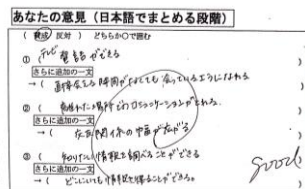 あなたの意見（日本語でまとめる段階）
（ 賛成 反対 ）どちらか○で囲む
① テレビ電話ができる
さらに追加の一文
→（ 直接会える時間がなくても 会っているようになれる
② （ 離れた場所でコミュニケーションがとれる。 ）
さらに追加の一文
→（ 友好関係の幅が広がる ）
③ （ 知りたい情報を調べることができる ）
さらに追加の一文
→（ どこにいても情報を得ることができる。
good